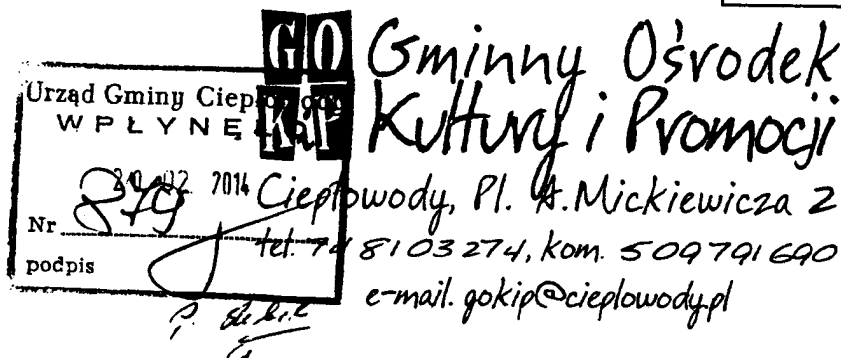 GO Gminny Ośrodek
KiP Kultury i Promocji
Ciepłowody, Pl. A. Mickiewicza 2
tel. 74 8103274, kom. 509791690
e-mail. gokip@cieplowody.pl
Urząd Gminy Ciepłowody
WPŁYNĘŁO
20. 02. 2014
Nr 879
podpis